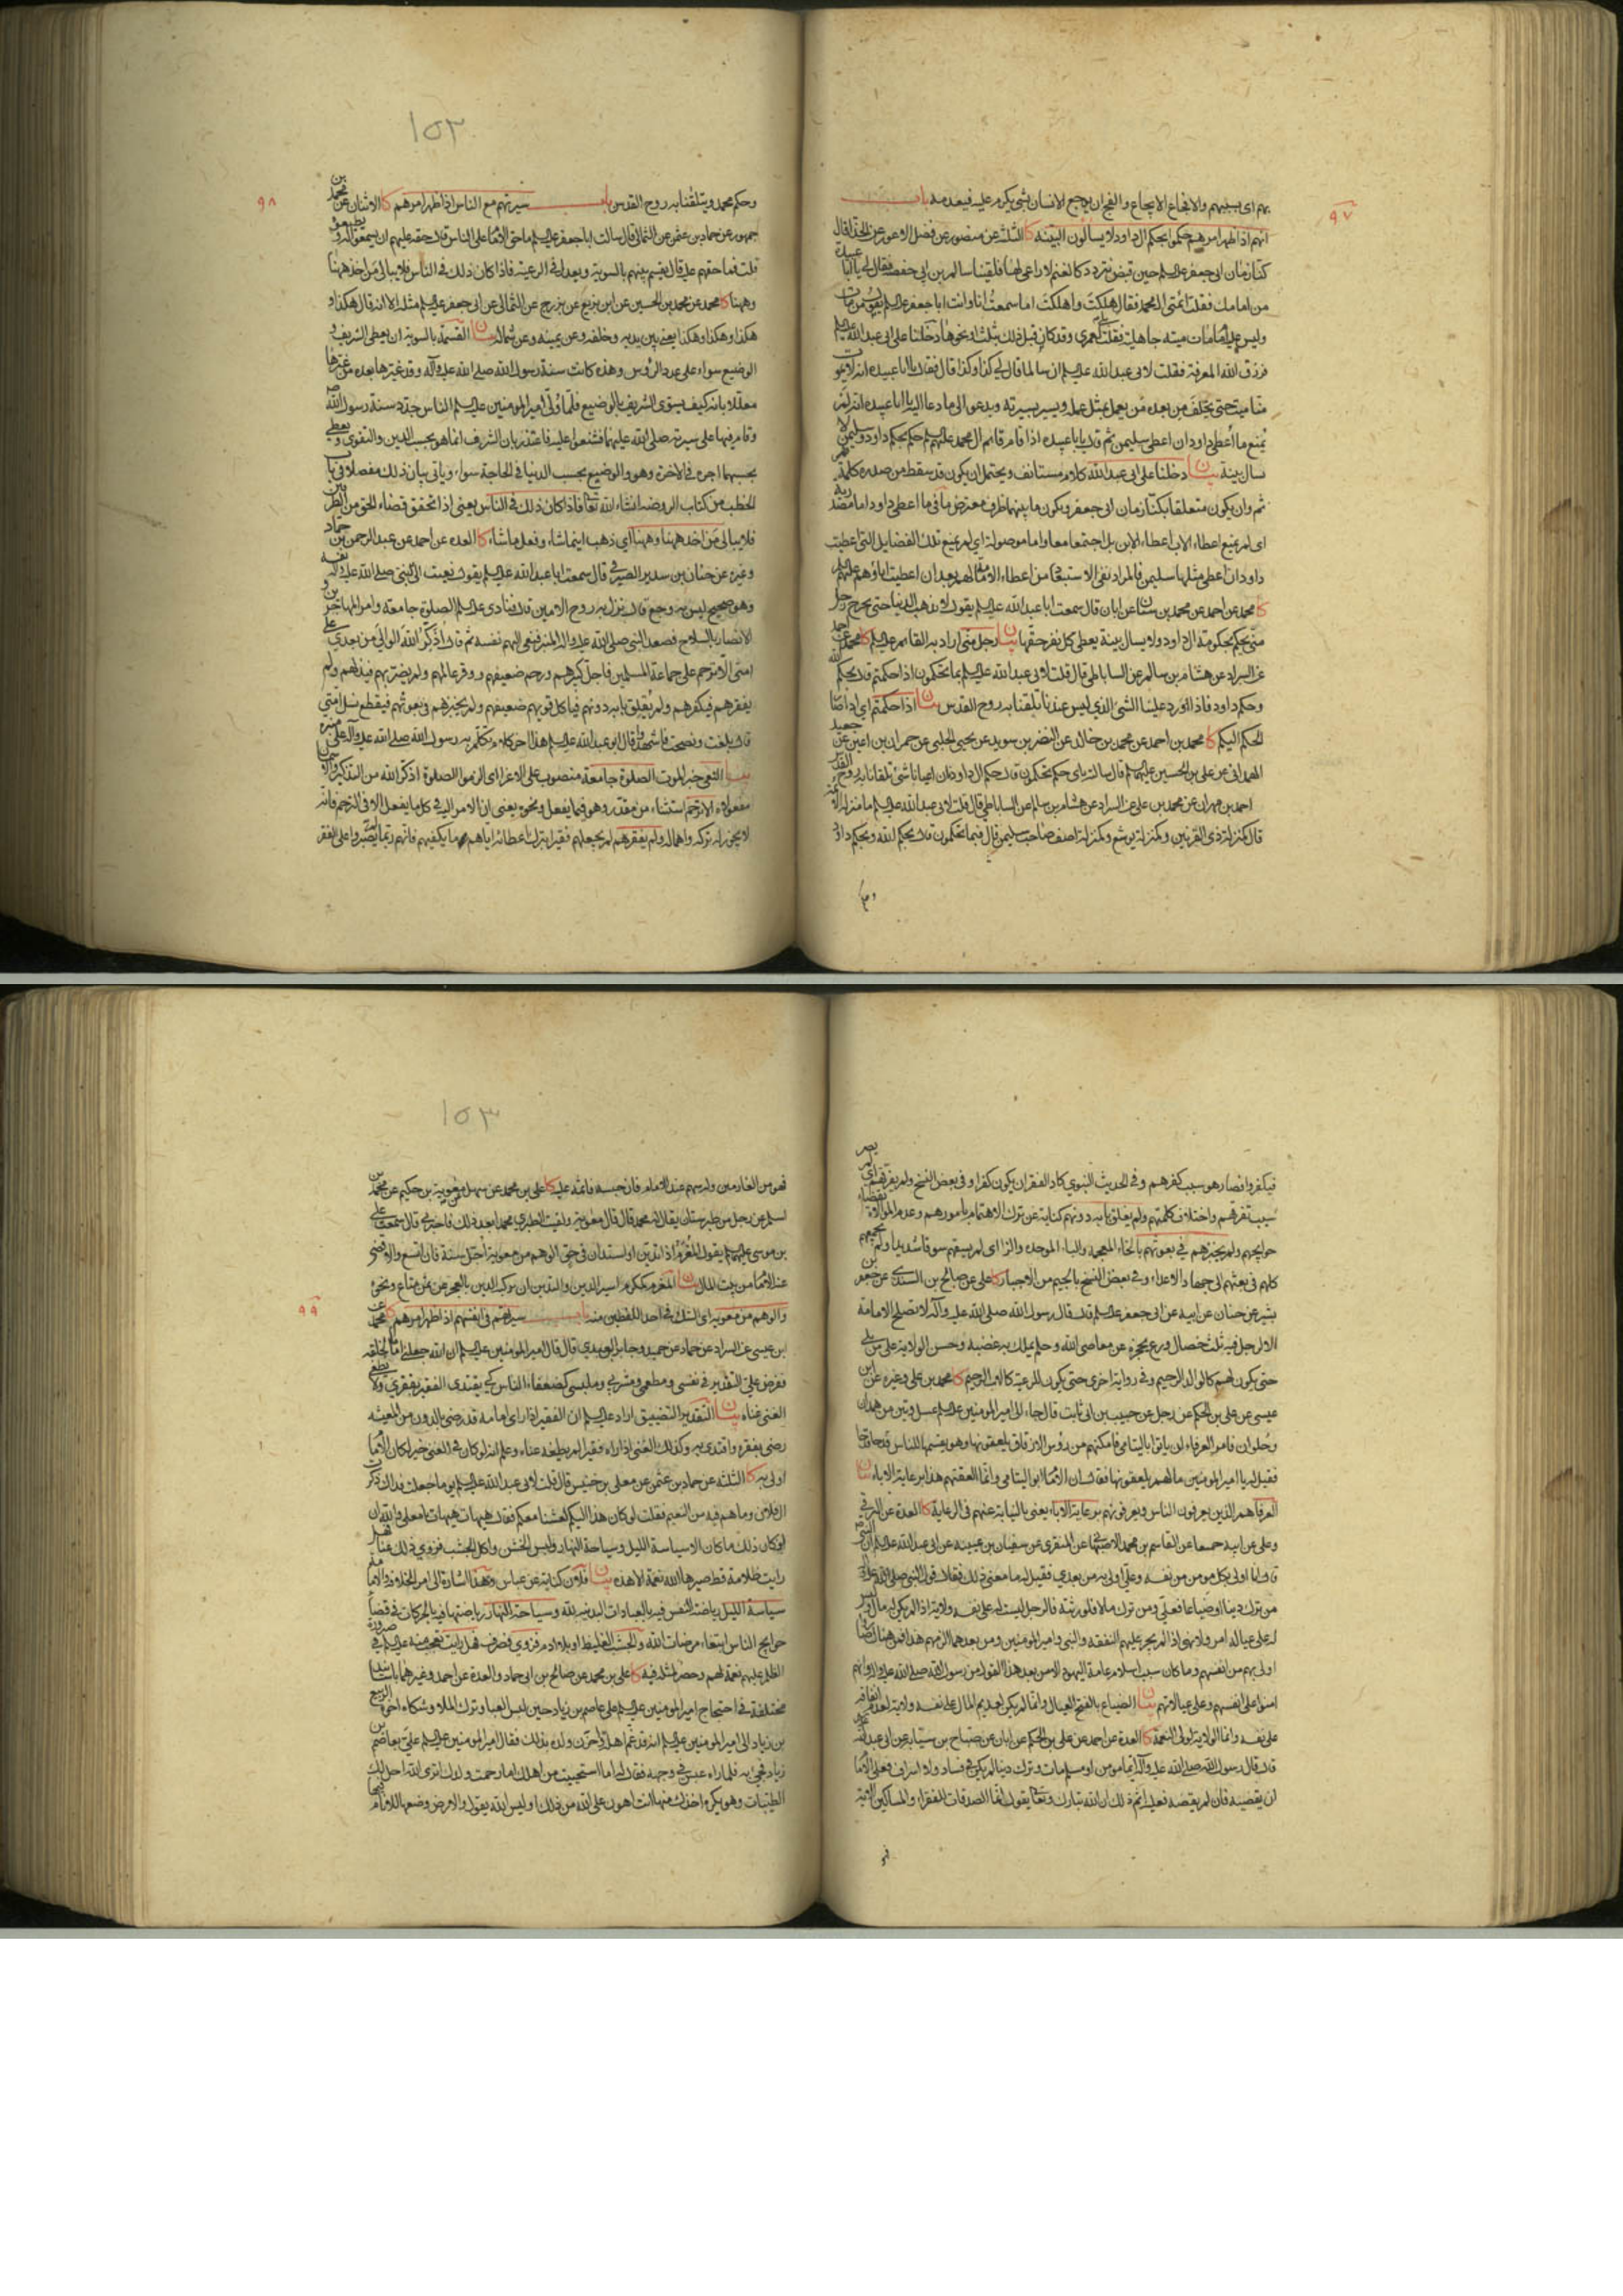 بهم اى يسبيهم والايجاع والفجع ان يوجع الانسان بشئ يكرم عليه فيعدمه باب
٩٧
انهم اذا ظهر امرهم حكموا بحكم ال داود لا يسألون البينه كا الثلثة عن منصور عن فضل الاعور عن الحذا قال
كنا زمان ابى جعفر عليه السلم حين قبض نتردد كالغنم لا راعى لها فلقينا سالم بن ابى حفصه فقال لى يا ابا عبيدة
من امامك فقلت ائمتى ال محمد فقال هلكت واهلكت اما سمعت انا وانت ابا جعفر عليه السلم يقول من مات
وليس عليه امام مات ميتة جاهلية فقلت بلى لعمرى وقد كان قبل ذلك بثلث او نحوها دخلنا على ابى عبد الله عليه السلم
فرزق الله المعرفة فقلت لابى عبد الله عليه السلم ان سالما قال لى كذا وكذا قال فقال يا ابا عبيده انه لا يموت
منا ميت حتى يخلف من بعده من يعمل بمثل عمله ويسير بسيرته ويدعو الى ما دعا اليه يا ابا عبيده انه لم
يمنع ما اعطى داود ان اعطى سليمن ثم قال يا ابا عبيده اذا قام قائم ال محمد عليهم السلم حكم بحكم داود وسليمن لا
سال بينة بيان دخلنا على ابى عبد الله كلام مستانف ويحتمل ان يكون قد سقط من صدره كلمة
ثم وان يكون متعلقا بكنا زمان ابى جعفر ويكون ما بينهما ظرف معترض ما فى ما اعطى داود اما مصدرية
اى لم يمنع اعطاء الاب اعطاء الابن بل اجتمعا معا واما موصولة اى لم يمنع تلك الفضايل التى اعطيت
داود ان اعطى مثلها سليمن فالمراد نفى الاستبعاد من اعطاء الائمة لهم بعد ان اعطيت اباؤهم عليهم السلم
كا محمد عن احمد عن محمد بن سنان عن ابان قال سمعت ابا عبد الله عليه السلم يقول لا يذهب الدنيا حتى يخرج رجل
منى يحكم بحكومة ال داود ولا يسال بينة يعطى كل نفس حقها بيان رجل منى اراد به القائم عليه السلم كا محمد عن احمد
عن السراد عن هشام بن سالم عن الساباطى قال قلت لابى عبد الله عليه السلم بما تحكمون اذا حكمتم قال بحكم الله
وحكم داود فاذا ورد علينا الشئ الذى ليس عندنا تلقانا به روح القدس بيان اذا حكمتم اى اذا صار
الحكم اليكم كا محمد بن احمد عن محمد بن خالد عن النضر بن سويد عن يحيى الحلبى عن حمران بن اعين عن جعيد
الهمدانى عن على بن الحسين عليهما السلم قال سالته باى حكم تحكمون قال حكم ال داود فان اعيانا شئ تلقانا به روح القدس
احمد بن مهران عن محمد بن على عن السراد عن هشام بن سالم عن الساباطى قال قلت لابى عبد الله عليه السلم ما منزلة الائمة
قال كمنزلة ذى القرنين وكمنزلة يوشع وكمنزلة اصف صاحب سليمن قال فبما تحكمون قال بحكم الله وبحكم داود
١٥٣
وحكم محمد ويتلقنا به روح القدس باب سيرتهم مع الناس اذا ظهر امرهم كا الاثنان عن محمد بن
٩٨
جمهور عن حماد بن عثمن عن الثمالى قال سالت ابا جعفر عليه السلم ما حق الامام على الناس قال حقه عليهم ان يسمعوا له ويطيعوا
قلت فما حقهم عليه قال يقسم بينهم بالسوية ويعدل فى الرعية فاذا كان ذلك فى الناس فلا يبالى من اخذ ههنا
وههنا كا محمد عن محمد بن الحسين عن ابن بزيع عن بزرج عن الثمالى عن ابى جعفر عليه السلم مثله الا انه قال هكذا و
هكذا وهكذا وهكذا يعنى بين يديه وخلفه وعن يمينه وعن شماله بيان القسمة بالسوية ان يعطى الشريف و
الوضيع سواء على عدد الرؤس وهذه كانت سنة رسول الله صلى الله عليه وآله وقد غيرها بعده من غيرها
معللا بانه كيف يسوى الشريف بالوضيع فلما ولى امير المومنين عليه السلم الناس جدد سنة رسول الله ص
وقام فيها على سيرته صلى الله عليهما فشنعوا عليه فاعتذر بان الشرف انما هو بحسب الدين والتقوى ويعطى
بحسبهما اجره فى الاخرة وهو والوضيع بحسب الدنيا فى الحاجة سواء وياتى بيان ذلك مفصلا فى باب
الخطب من كتاب الروضه انشاء الله تعالى فاذا كان ذلك فى الناس يعنى اذا تحقق قضاء الحق من الطرفين
فلا يبالى من اخذ ههنا وههنا اى ذهب اينما شاء وفعل ما شاء كا العده عن احمد عن عبد الرحمن بن حماد
وغيره عن حنان بن سدير الصيرفى قال سمعت ابا عبد الله عليه السلم يقول نعيت الى النبى صلى الله عليه وآله نفسه
وهو صحيح ليس به وجع قال نزل به روح الامين قال فنادى عليه السلم الصلوة جامعة وامر المهاجرين و
الانصار بالسلاح فصعد النبى صلى الله عليه وآله المنبر فنعى اليهم نفسه ثم قال اذكر الله الوالى من بعدى على
امتى الا ترحم على جماعة المسلمين فاجل كبيرهم ورحم ضعيفهم ووقر عالمهم ولم يضر بهم فيذلهم ولم
يفقرهم فيكفرهم ولم يغلق بابه دونهم فياكل قويهم ضعيفهم ولم يخبزهم فى بعوثهم فيقطع نسل امتى
قال بلغت ونصحت فاشهدوا قال ابو عبد الله عليه السلم هذا اخر كلام تكلم به رسول الله صلى الله عليه وآله على منبره
بيان النعى خبر الموت الصلوة جامعة منصوب على الاغراء اى الزموا الصلوة اذكر الله من التذكير والوالى
مفعوله الا ترحم استثناء من مقدر وهو فيما يفعل ونحوه يعنى ان الامر اليه فى كل ما يفعل الا فى الترحم فانه
لا يجوز له تركه واهماله ولم يفقرهم لم يجعلهم فقيرا بترك اعطائه اياهم ما يكفيهم فانهم ربما لم يصبروا على الفقر
فيكفروا فصار هو سبب كفرهم وفى الحديث النبوى كاد الفقر ان يكون كفرا وفى بعض النسخ ولم يفرقهم اى لم يصر
سبب تفرقهم واختلاف كلمتهم ولم يغلق بابه دونهم كناية عن ترك الاهتمام بامورهم وعدم الموالاة بقضاء
حوايجهم ولم يخبزهم فى بعوثهم بالخاء المعجمه والباء الموحده والزا اى لم يسقهم سوقا شديدا ولم يجمعهم
كلهم فى بعثهم الى جهاد الاعداء وفى بعض النسخ بالجيم من الاجبار كا على عن صالح بن السندى عن جعفر بن
بشير عن حنان عن ابيه عن ابى جعفر عليه السلم قال قال رسول الله صلى الله عليه وآله لا تصلح الامامة
الا لرجل فيه ثلث خصال ورع يحجزه عن معاصى الله وحلم يملك به غضبه وحسن الولاية على من يلى
حتى يكون لهم كالوالد الرحيم وفى رواية اخرى حتى يكون للرعية كالاب الرحيم كا محمد بن على وغيره عن ابن
عيسى عن على بن الحكم عن رجل عن حبيب بن ابى ثابت قال جاء الى امير المومنين عليه السلم عسل وتين من همدان
وحلوان فامر العرفاء ان ياتوا باليتامى فامكنهم من رؤس الازقاق يلعقونها وهو يقسمها للناس قدحا قدحا
فقيل له يا امير المومنين ما لهم يلعقونها فقال ان الامام ابو اليتامى وانما العقتهم هذا برعاية الاباء بيان
العرفا هم الذين يعرفون الناس ويعرفونهم برعاية الاباء يعنى بالنيابة عنهم فى الرعاية كا العدة عن البرقى
وعلى عن ابيه جميعا عن القاسم بن محمد الاصبهانى عن المنقرى عن سفيان بن عيينه عن ابى عبد الله عليه السلم ان النبى ص
قال انا اولى بكل مومن من نفسه وعلى اولى به من بعدى فقيل له ما معنى ذلك فقال قول النبى صلى الله عليه وآله
من ترك دينا او ضياعا فعلى ومن ترك مالا فلورثته فالرجل ليست له على نفسه ولاية اذا لم يكن له مال وليس
له على عياله امر ولا نهى اذا لم يجر عليهم النفقه والنبى وامير المومنين ومن بعدهما الزمهم هذا فمن هناك صاروا
اولى بهم من انفسهم وما كان سبب اسلام عامة اليهود الا من بعد هذا القول من رسول الله صلى الله عليه وآله وانهم
امنوا على انفسهم وعلى عيالاتهم بيان الضياع بالفتح العيال وانما لم يكن لعديم المال على نفسه ولاية لعدم انفاقه
على نفسه وانما الولاية لولى النعمة كا العدة عن احمد عن على بن الحكم عن ابان عن صباح بن سيابه عن ابى عبد الله
قال قال رسول الله صلى الله عليه وآله ايما مومن او مسلم مات وترك دينا لم يكن فى فساد ولا اسراف فعلى الامام
ان يقضيه فان لم يقضه فعليه اثم ذلك ان الله تبارك وتعالى يقول انما الصدقات للفقراء والمساكين الاية
١٥٣
فهو من الغارمين وله سهم عند الامام فان حبسه فاثمه عليه كا على بن محمد عن سهل عن معوية بن حكيم عن محمد بن
اسلم عن رجل من طبرستان يقال له محمد قال قال معوية ولقيت الطبرى محمدا بعد ذلك فاخبرنى قال سمعت على
بن موسى عليهما السلم يقول المغرم اذا تدين او استدان فى حق الوهم من معوية اجل سنة فان اتسع والا قضى
عنه الامام من بيت المال بيان المغرم كمكرم اسير الدين والتدين ان يركبه الدين بالعجز عن ثمن متاع ونحوه
والوهم من معويه اى الشك فى احد اللفظين منه باب سيرتهم فى انفسهم اذا ظهر امرهم كا محمد عن
٩٩
ابن عيسى عن السراد عن حماد عن حميد وجابر العبدى قال قال امير المومنين عليه السلم ان الله جعلنى اماما لخلقه
ففرض على التقدير فى نفسى ومطعمى ومشربى وملبسى كضعفاء الناس كى يقتدى الفقير بفقرى ولا يطغى
الغنى غناه بيان التقدير التضييق اراد عليه السلم ان الفقير اذا راى امامه قد رضى بالدون من المعيشه
رضى بفقره واقتدى به وكذلك الغنى اذا راه فقيرا لم يطغه غناه وعلم انه لو كان فى الغنى خير لكان الامام
اولى به كا الثلثة عن حماد بن عثمن عن معلى بن خنيس قال قلت لابى عبد الله عليه السلم يوما جعلت فداك ذكرت
ال فلان وما هم فيه من النعيم فقلت لو كان هذا اليكم لعشنا معكم فقال هيهات هيهات يا معلى اما والله ان
لو كان ذلك ما كان الا سياسة الليل وسياحة النهار ولبس الخشن واكل الجشب فزوى ذلك عنا فهل
رايت ظلامة قط صيرها الله نعمة الا هذه بيان فلان كناية عن عباس وهذا اشارة الى امر الخلافة والامامة
سياسة الليل رياضة النفس فيه بالعبادات البدنية لله وسياحة النهار رياضتها فيه بالحركات فى قضاء
حوايج الناس ابتغاء مرضات الله والجشب الغليظ او بلا ادم فزوى فصرف فهل رايت تعجب منه عليه السلم فى صيرورة
الظلم عليهم نعمة لهم وحصر لمثله فيه كا على بن محمد عن صالح بن ابى حماد والعدة عن احمد وغيرهما باسانيد
مختلفة فى احتجاج امير المومنين عليه السلم على عاصم بن زياد حين لبس العبا وترك الملا وشكاه اخوه الربيع
بن زياد الى امير المومنين عليه السلم انه قد غم اهله واحزن ولده بذلك فقال امير المومنين عليه السلم على بعاصم بن
زياد فجئ به فلما راه عبس فى وجهه فقال له اما استحييت من اهلك اما رحمت ولدك اترى الله احل لك
الطيبات وهو يكره اخذك منها انت اهون على الله من ذلك اوليس الله يقول والارض وضعها للانام فيها